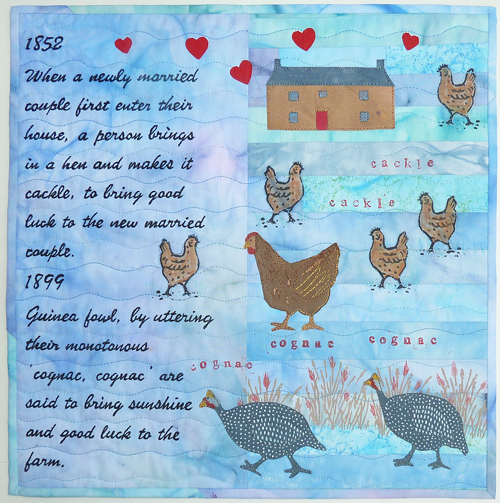 1852
When a newly married
couple first enter their
house, a person brings
in a hen and makes it
cackle, to bring good
luck to the new married
couple.
1899
Guinea fowl, by uttering
their monotonous
'cognac, cognac' are
said to bring sunshine
and good luck to the
farm.
cackle
cackle
cognac cognac
cognac